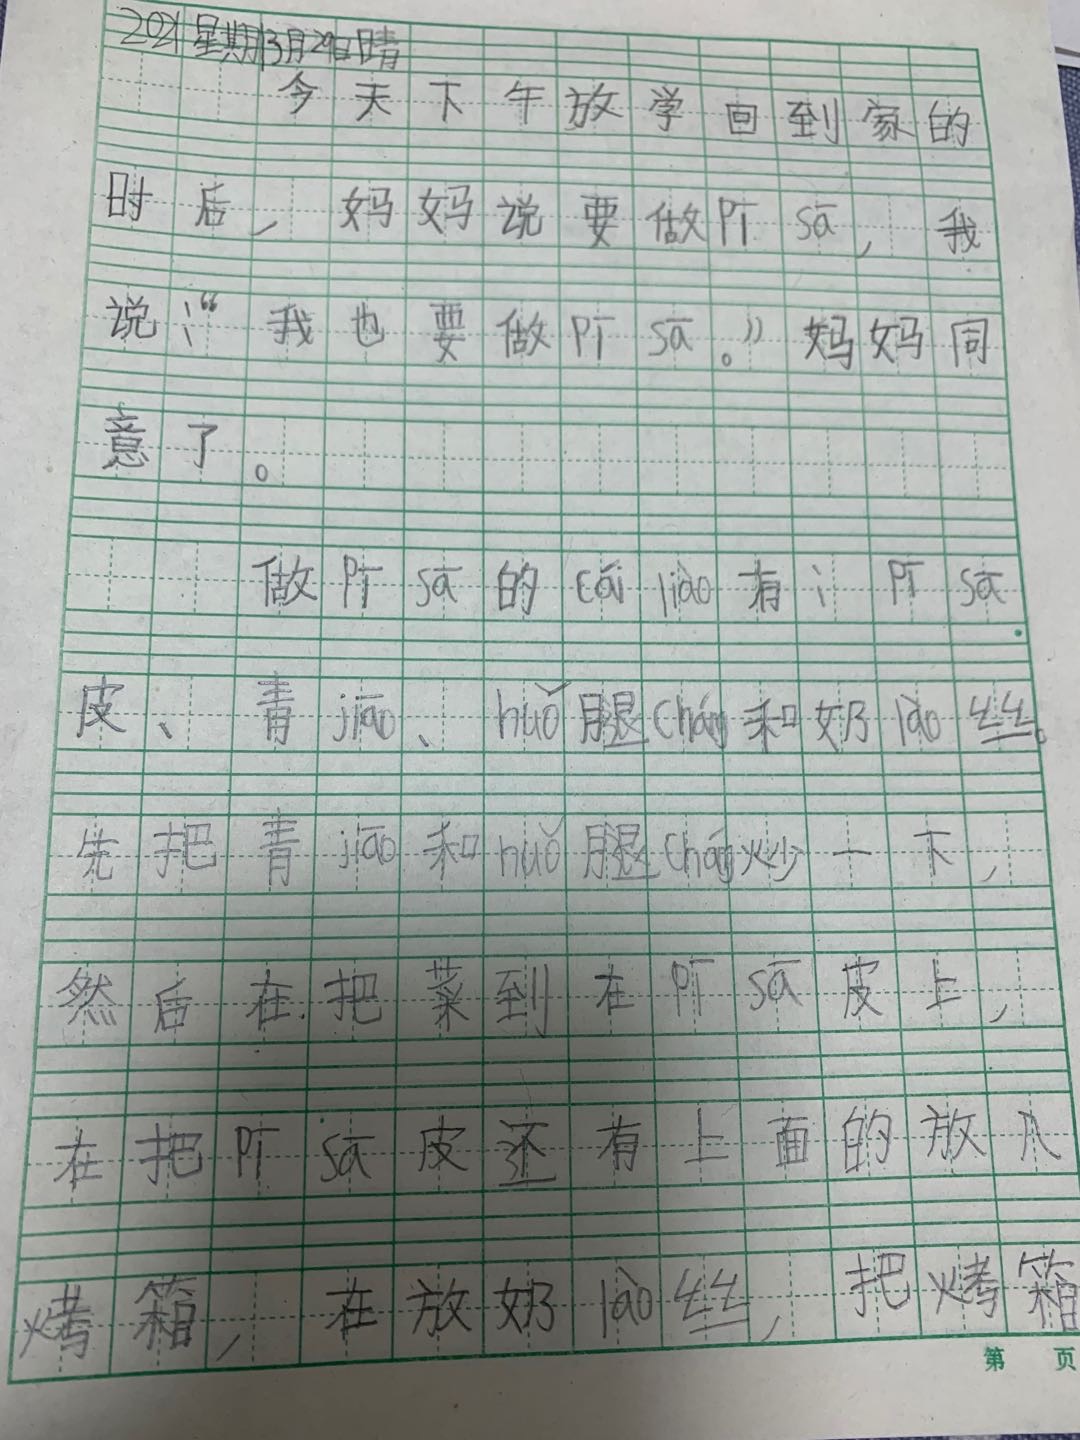 2021星期13月29日晴
今天下午放学回到家的
时后，妈妈说要做Pī sā，我
说："我也要做Pī sā。"妈妈同
意了。
做Pī sā的cái liào有：Pī sā
皮、青jiāo、huǒ腿cháng和奶lào丝。
先把青jiāo和huǒ腿cháng炒一下，
然后在把菜到在Pī sā皮上，
在把Pī sā皮还有上面的放入
烤箱，在放奶lào丝，把烤箱
第 页